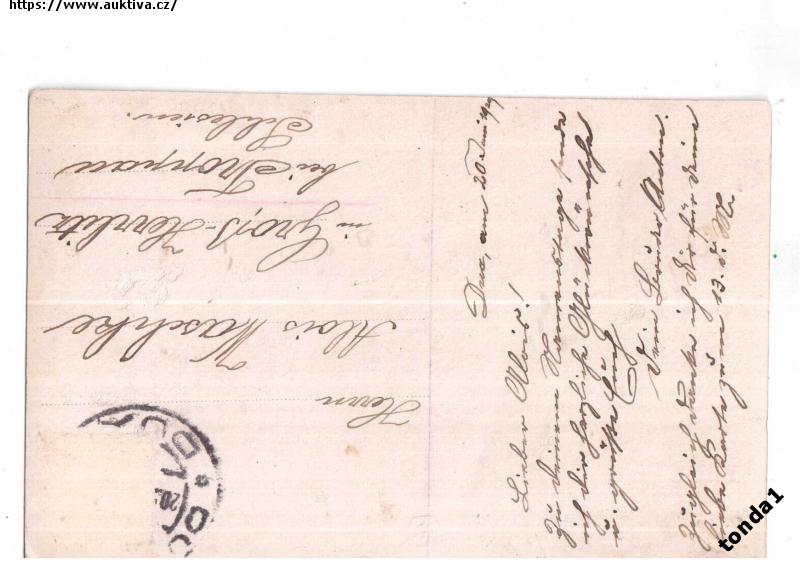 https://www.auktiva.cz/
Herrn
Alois Waschke
in Groß-Herrlitz
bei Troppau
Schlesien.
am 20. Juni
Lieber Alois!
Zu deinem Namenstage sende
ich dir herzliche Glückwünsche
u. grüße Euch
Dein Bruder Anton.
Zugleich danke ich dir für deine
liebe Karte zum 13. d. M.
tonda1